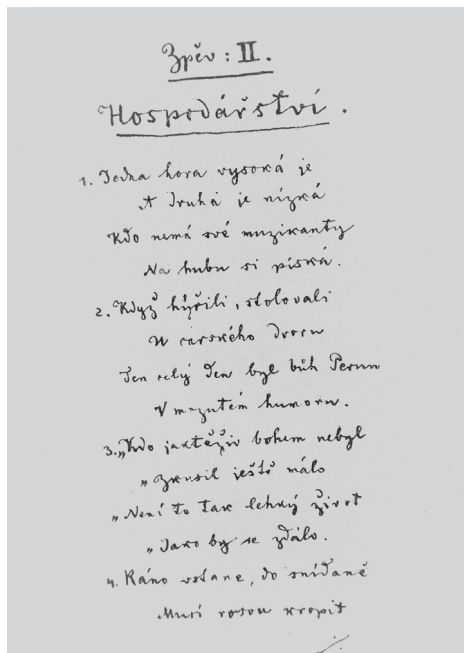 Zpěv: II.
Hospodářství.
1. Jedna hora vysoká je
A druhá je nízká
Kdo nemá své muzikanty
Na hubu si píská.
2. Když hýřili, stolovali
U carského dvoru
Ten celý den byl bůh Perun
V mrzutém humoru.
3. „Kdo jaktěživ bohem nebyl
„Zkusil ještě málo
„Není to tak lehký život
„Jako by se zdálo.
4. Ráno vstane, do snídaně
Musí rosou kropit